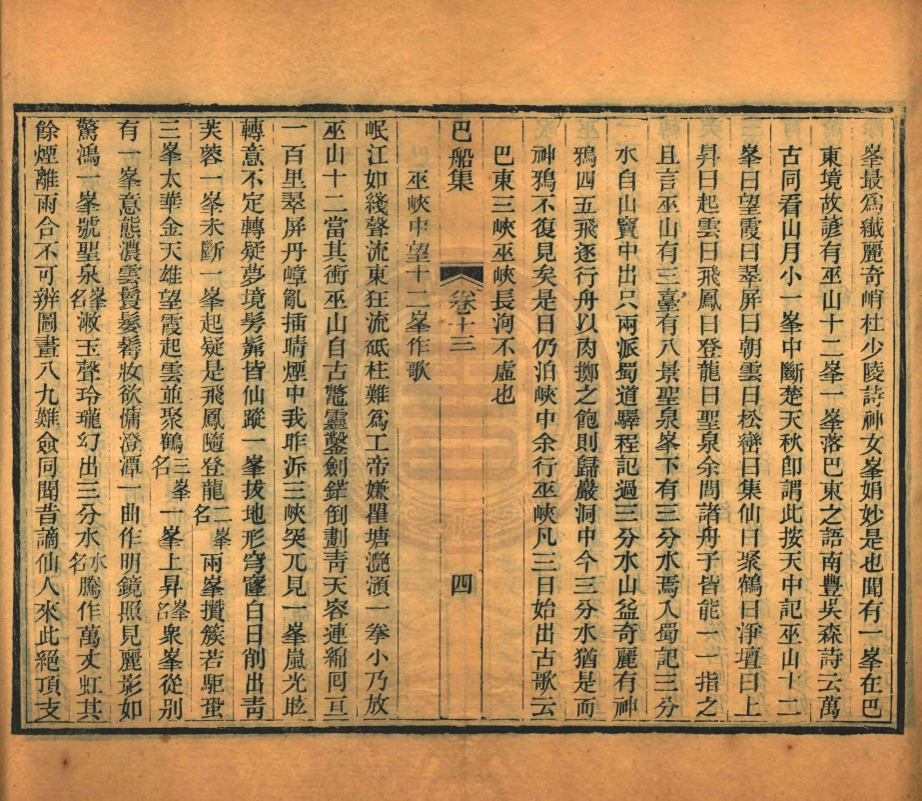 峯最爲纖麗奇峭杜少陵詩神女峯娟妙是也聞有一峯在巴
東境故諺有巫山十二峯一峯落巴東之語南豐吳森詩云萬
古同看山月小一峯中斷楚天秋卽謂此按天中記巫山十二
峯曰望霞曰翠屏曰朝雲曰松巒曰集仙曰聚鶴曰淨壇曰上
昇曰起雲曰飛鳳曰登龍曰聖泉余問諸舟子皆能一一指之
且言巫山有三臺有八景聖泉峯下有三分水焉入蜀記三分
水自山竇中出只兩派蜀道驛程記過三分水山益奇麗有神
鴉四五飛逐行舟以肉擲之飽則歸巖洞中今三分水猶是而
神鴉不復見矣是日仍泊峽中余行巫峽凡三日始出古歌云
巴東三峽巫峽長洵不虛也
巴船集 卷十三 四
巫峽中望十二峯作歌
岷江如綫聲流東狂流砥柱難爲工帝嫌瞿塘灧澦一拳小乃放
巫山十二當其衝巫山自古鼈靈鑿劍鋩倒劃靑天容連綿囘亘
一百里翠屏丹嶂亂插晴煙中我昨泝三峽突兀見一峯嵐光眩
轉意不定轉疑夢境髣髴皆仙蹤一峯拔地形穹窿白日削出靑
芙蓉一峯未斷一峯起疑是飛鳳隨登龍二峯名兩峯攢簇若駏蛩
三峯太華金天雄望霞起雲並聚鶴三峯名一峯上昇峯名衆峯從别
有一峯意態濃雲鬟髮鬌妝欲慵澄潭一曲作明鏡照見麗影如
驚鴻一峯號聖泉峯名潄玉聲玲瓏幻出三分水水名騰作萬丈虹其
餘煙離雨合不可辨圖畫八九難僉同聞昔謫仙人來此絕頂支